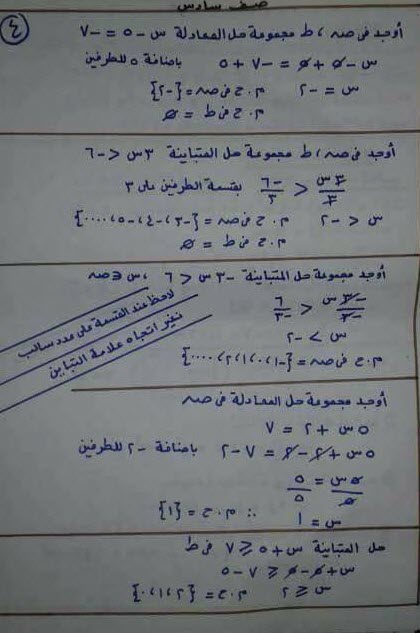 صف سادس
٤
أوجد فى صہ ، ط مجموعة حل المعادلة س - ٥ = -٧
س - ٥ + ٥ = -٧ + ٥ باضافة ٥ للطرفين
س = -٢ م . ح فى صہ = {-٢}
م . ح فى ط = ∅
أوجد فى صہ ، ط مجموعة حل المتباينة ٣س < -٦
٣س/٣ < -٦/٣ بقسمة الطرفين على ٣
س < -٢ م . ح فى صہ = {-٣ ، -٤ ، -٥ ، ....}
م . ح فى ط = ∅
أوجد مجموعة حل المتباينة -٣س < ٦ ، س ∈ صہ
-٣س/-٣ < ٦/-٣
س > -٢
م . ح فى صہ = {-١ ، ٠ ، ١ ، ٢ ، ....}
لاحظ عند القسمة على عدد سالب
نغير اتجاه علامة التباين
أوجد مجموعة حل المعادلة فى صہ
٥س + ٢ = ٧
٥س + ٢ - ٢ = ٧ - ٢ باضافة -٢ للطرفين
٥س/٥ = ٥/٥
س = ١ ∴ م . ح = {١}
حل المتباينة س + ٥ ≤ ٧ فى ط
س + ٥ - ٥ ≤ ٧ - ٥
س ≤ ٢ م . ح = {٢ ، ١ ، ٠}